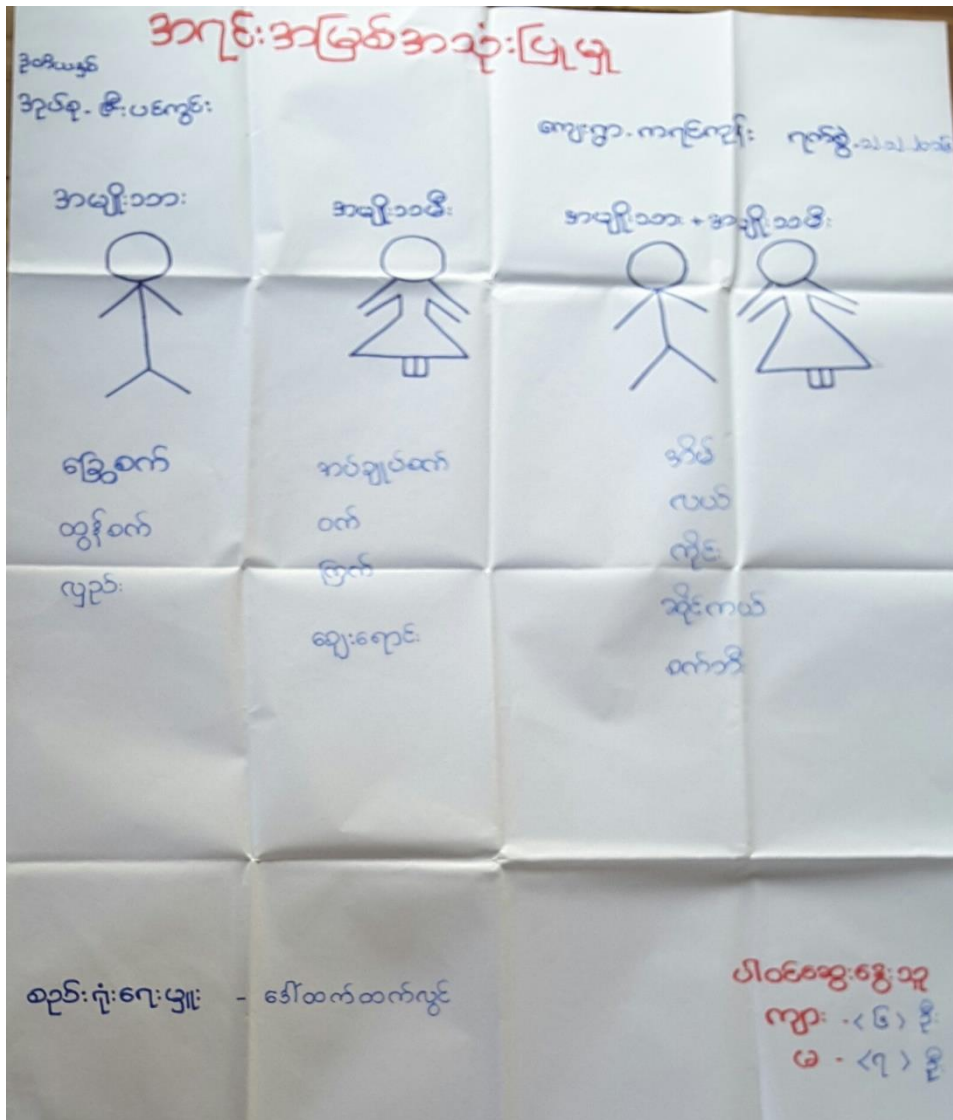 အရင်းအမြစ်အသုံးပြုမှု
ဒုတိယနှစ်
အုပ်စု - ဇီးပင်ကွင်း
ကျေးရွာ - ကရင်ကျွန်း ရက်စွဲ -
အမျိုးသား
အမျိုးသမီး
အမျိုးသား + အမျိုးသမီး
ခြွေစက်
ထွန်စက်
လှည်း
အပ်ချုပ်စက်
ဝက်
ကြက်
ဈေးရောင်း
အိမ်
လယ်
ကိုင်း
ဆိုင်ကယ်
စက်ဘီး
စည်းရုံးရေးမှူး - ဒေါ်ထက်ထက်လွင်
ပါဝင်ဆွေးနွေးသူ
ကျား - <၆> ဦး
မ - <၇> ဦး